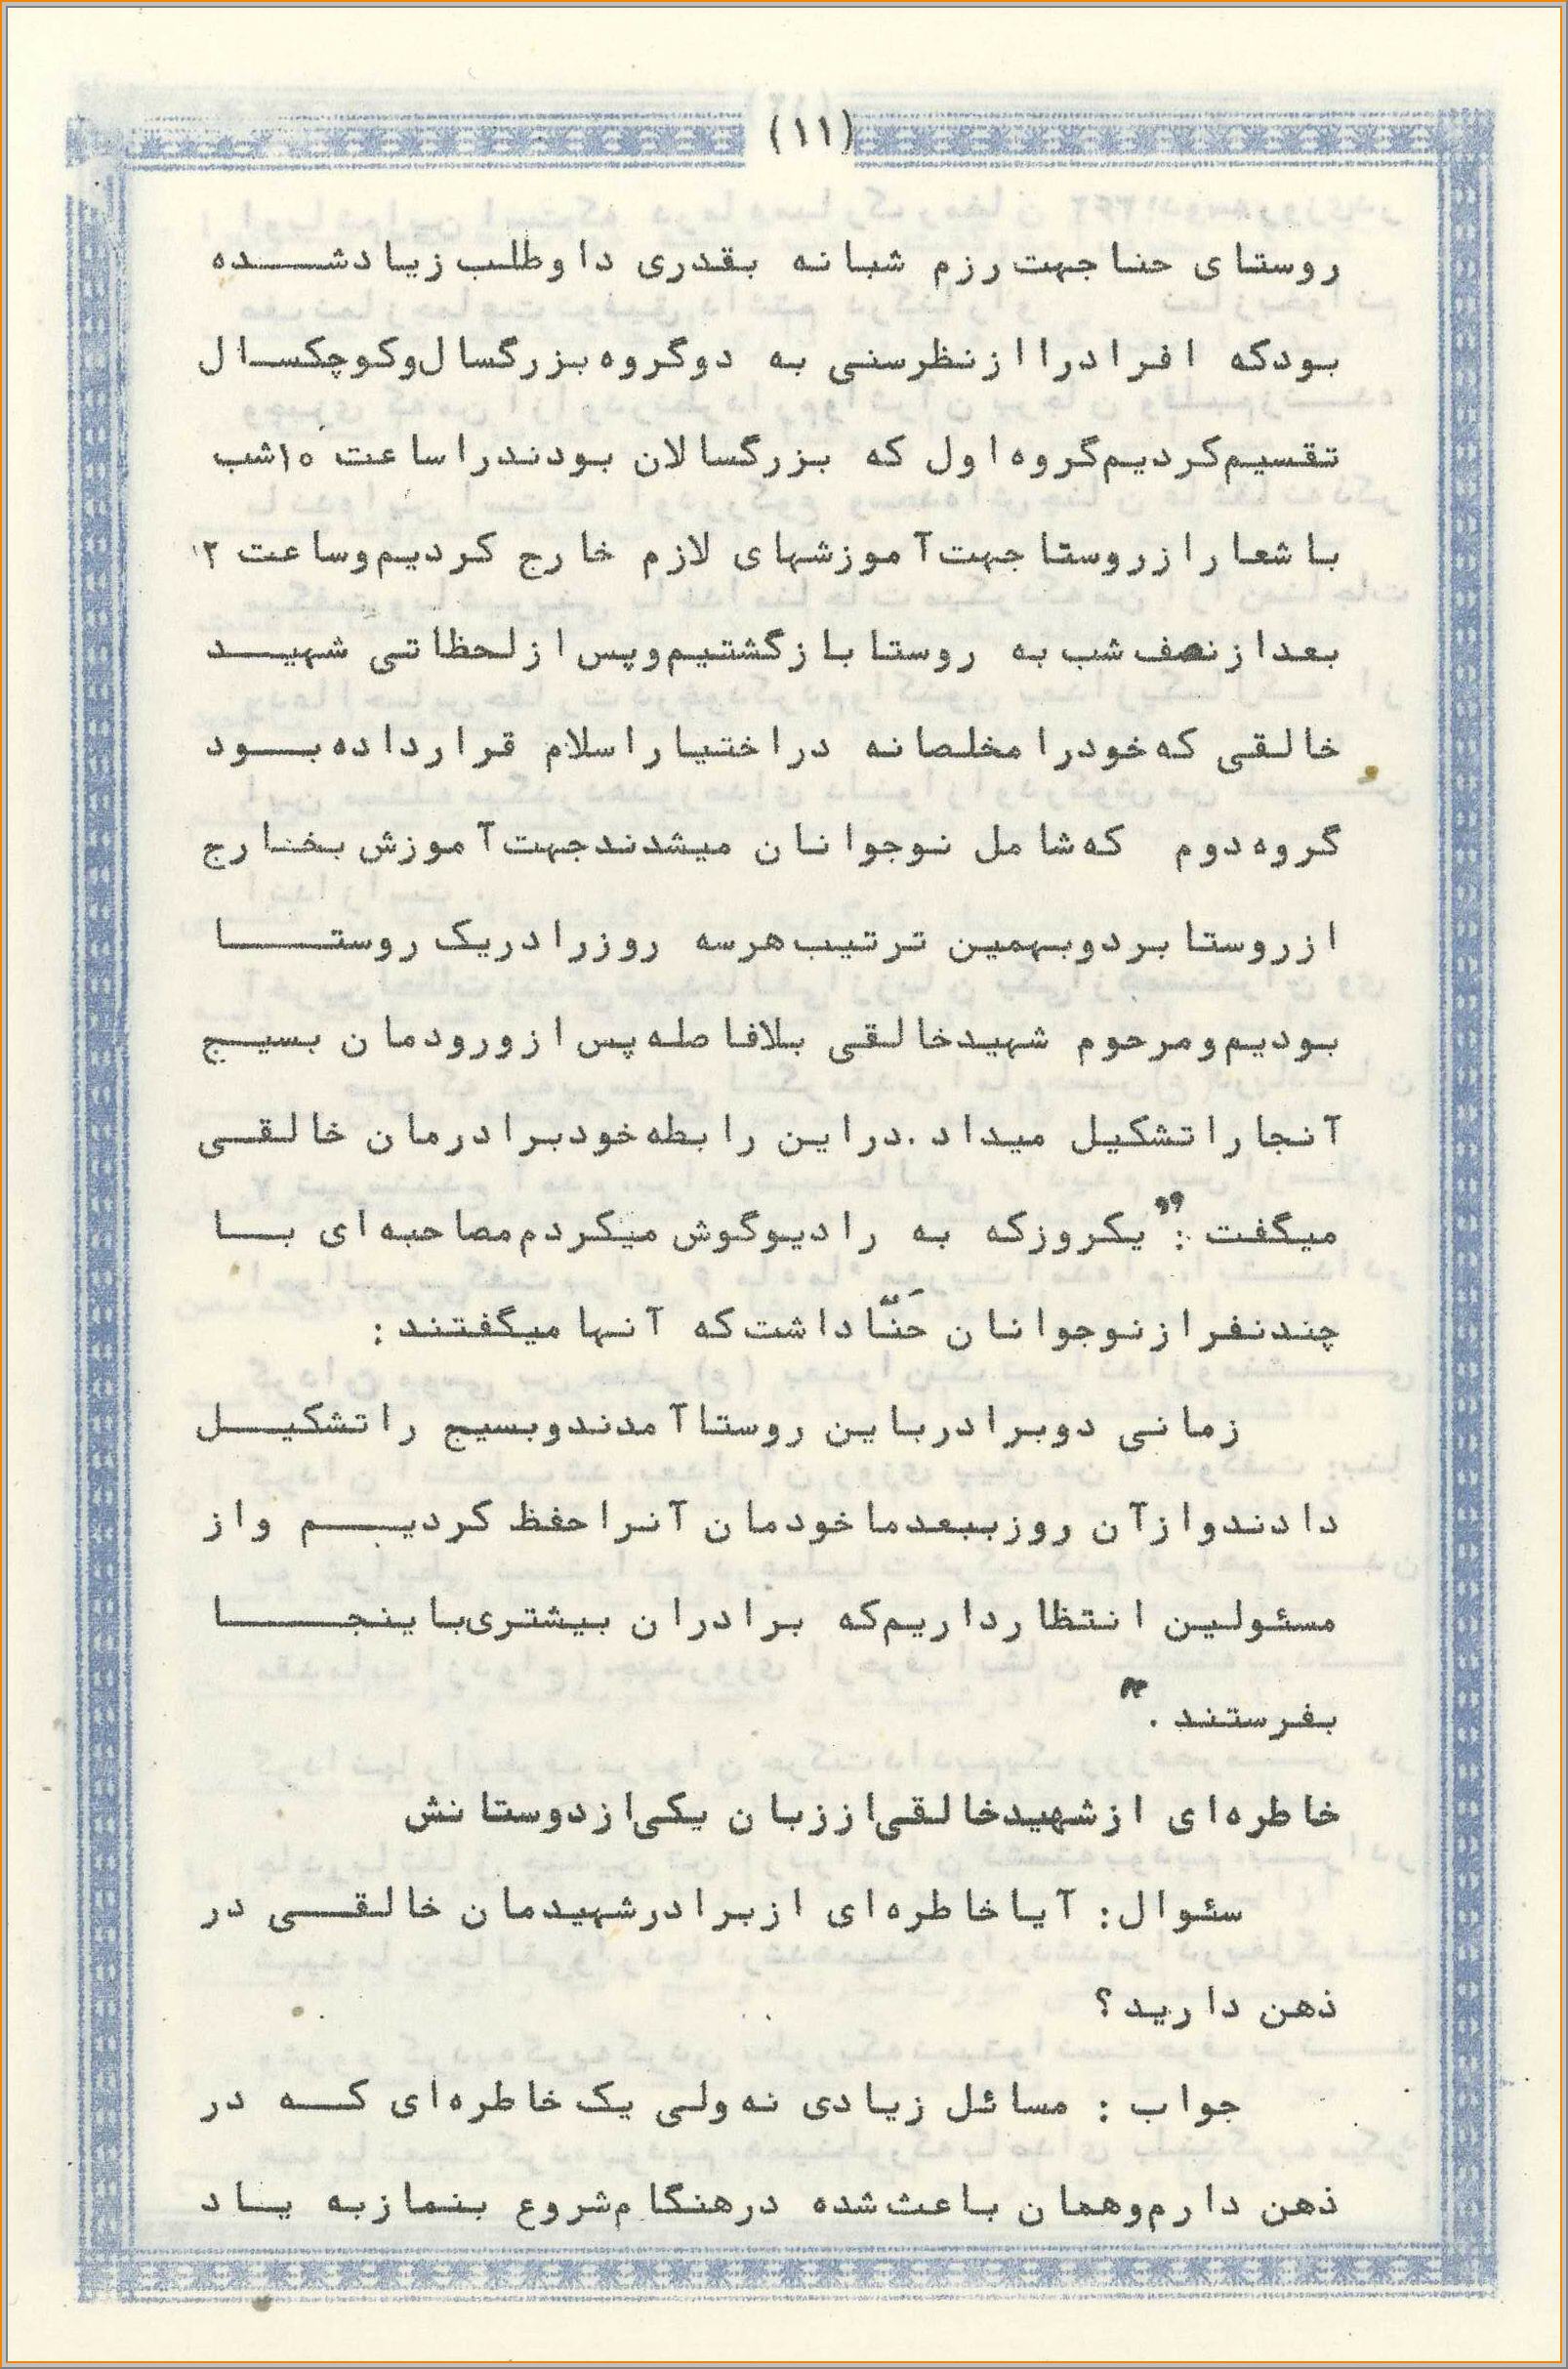 (۱۱)
روستای حنا جهت رزم شبانه بقدری داوطلب زیاد شده
بود که افراد را از نظر سنی به دو گروه بزرگسال و کوچکسال
تقسیم کردیم گروه اول که بزرگسالان بودند را ساعت ۱۰ شب
با شعار از روستا جهت آموزشهای لازم خارج کردیم و ساعت ۱۲
بعد از نصف شب به روستا بازگشتیم و پس از لحظاتی شهید
خالقی که خود را مخلصانه در اختیار اسلام قرار داده بود
گروه دوم که شامل نوجوانان میشدند جهت آموزش بخارج
از روستا برد و بهمین ترتیب هر سه روز را در یک روستا
بودیم و مرحوم شهید خالقی بلافاصله پس از ورودمان بسیج
آنجا را تشکیل میداد . در این رابطه خود برادرمان خالقی
میگفت : " یکروز که به رادیو گوش میکردم مصاحبه ای با
چند نفر از نوجوانان حَنّا داشت که آنها میگفتند :
زمانی دو برادر باین روستا آمدند و بسیج را تشکیل
دادند و از آن روز ببعد ما خودمان آنرا حفظ کردیم و از
مسئولین انتظار داریم که برادران بیشتری باینجا
بفرستند . "
خاطره ای از شهید خالقی از زبان یکی از دوستانش
سئوال : آیا خاطره ای از برادر شهیدمان خالقی در
ذهن دارید ؟
جواب : مسائل زیادی نه ولی یک خاطره ای که در
ذهن دارم و همان باعث شده در هنگام شروع بنماز به یاد